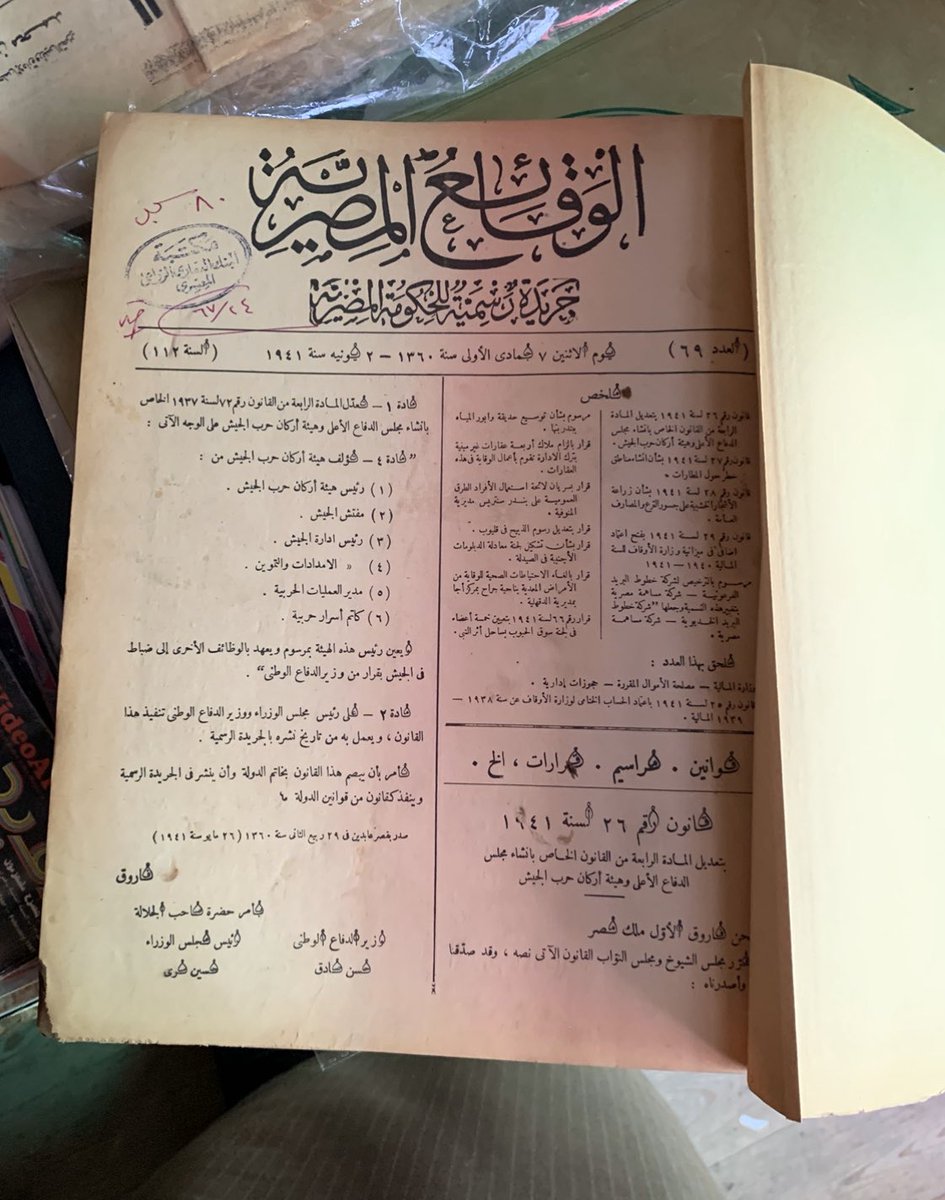 الوقائع المصرية
جريدة رسمية للحكومة المصرية
٨٠
مكتبة
البنك العقارى الزراعى
المصرى
٦٧/٢٤
(العدد ٦٩)
يوم الاثنين ٧ جمادى الأولى سنة ١٣٦٠ – ٢ يونيه سنة ١٩٤١
(السنة ١١٢)
ملخص
قانون رقم ٢٦ لسنة ١٩٤١ بتعديل المادة
الرابعة من القانون الخاص بانشاء مجلس
الدفاع الأعلى وهيئة أركان حرب الجيش .
قانون رقم ٢٧ لسنة ١٩٤١ بشأن انشاء مناطق
خطر حول المطارات .
قانون رقم ٢٨ لسنة ١٩٤١ بشأن زراعة
الأشجار الخشبية على جسور الترع والمصارف
العامة .
قانون رقم ٢٩ لسنة ١٩٤١ بفتح اعتماد
اضافى فى ميزانية وزارة الأوقاف للسنة
المالية ١٩٤٠ – ١٩٤١
مرسوم بالترخيص لشركة خطوط البريد
الفرعونية – شركة مساهمة مصرية
بتغيير هذه التسمية وجعلها "شركة خطوط
البريد الخديوية – شركة مساهمة
مصرية .
مرسوم بشأن توسيع حديقة وابور المياه
ببندر بنها .
قرار بالزام ملاك أربعة عقارات غير مبنية
بترك الادارة تقوم بأعمال الوقاية فى هذه
العقارات .
قرار بسريان لائحة استعمال الأفراد الطرق
العمومية على بندر سنتريس مديرية
المنوفية .
قرار بتعديل رسوم الذبيح فى قليوب .
قرار بشأن تشكيل لجنة معادلة الدبلومات
الأجنبية فى الصيدلة .
قرار بالغاء الاحتياطات الصحية للوقاية من
الأمراض المعدية بناحية جراح بمركز أجا
بمديرية الدقهلية .
قرار رقم ٦٦ لسنة ١٩٤١ بتعيين خمسة أعضاء
فى لجنة سوق الحبوب بساحل أثر النبى .
ملحق بهذا العدد :
وزارة المالية – مصلحة الأموال المقررة – حجوزات إدارية .
قانون رقم ٢٥ لسنة ١٩٤١ باعتماد الحساب الختامى لوزارة الأوقاف عن سنة ١٩٣٨ –
١٩٣٩ المالية .
قوانين . مراسيم . قرارات ، الخ .
قانون رقم ٢٦ لسنة ١٩٤١
بتعديل المادة الرابعة من القانون الخاص بانشاء مجلس
الدفاع الأعلى وهيئة أركان حرب الجيش
نحن فاروق الأول ملك مصر
قرر مجلس الشيوخ ومجلس النواب القانون الآتى نصه ، وقد صدقنا
وأصدرناه :
مادة ١ – تعدل المادة الرابعة من القانون رقم ٧٢ لسنة ١٩٣٧ الخاص
بانشاء مجلس الدفاع الأعلى وهيئة أركان حرب الجيش على الوجه الآتى :
"مادة ٤ – تؤلف هيئة أركان حرب الجيش من :
(١) رئيس هيئة أركان حرب الجيش .
(٢) مفتش الجيش .
(٣) رئيس ادارة الجيش .
(٤) » الامدادات والتموين .
(٥) مدير العمليات الحربية .
(٦) كاتم أسرار حربية .
ويعين رئيس هذه الهيئة بمرسوم ويعهد بالوظائف الأخرى إلى ضباط
فى الجيش بقرار من وزير الدفاع الوطنى" .
مادة ٢ – على رئيس مجلس الوزراء ووزير الدفاع الوطنى تنفيذ هذا
القانون ، ويعمل به من تاريخ نشره بالجريدة الرسمية .
نأمر بأن يبصم هذا القانون بخاتم الدولة وأن ينشر فى الجريدة الرسمية
وينفذ كقانون من قوانين الدولة
صدر بقصر عابدين فى ٢٩ ربيع الثانى سنة ١٣٦٠ (٢٦ مايو سنة ١٩٤١)
فاروق
بأمر حضرة صاحب الجلالة
وزير الدفاع الوطنى
رئيس مجلس الوزراء
حسن صادق
حسين سرى